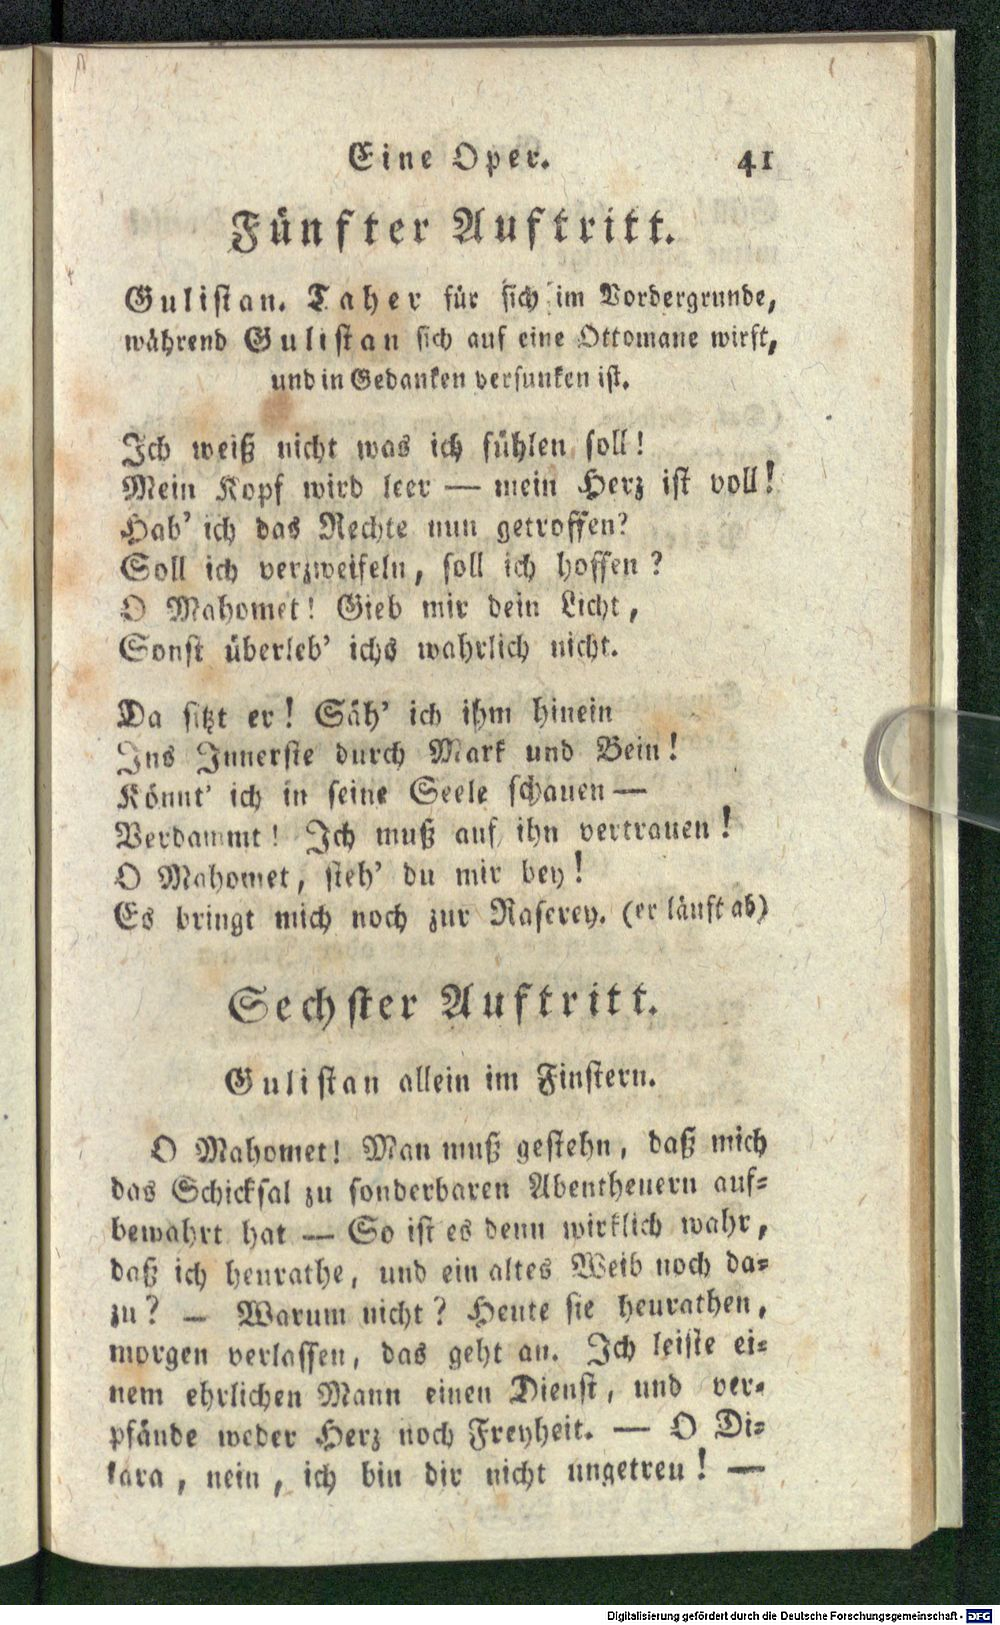 Eine Oper. 41
Fünfter Auftritt.
Gulistan. Taher für sich im Vordergrunde,
während Gulistan sich auf eine Ottomane wirft,
und in Gedanken versunken ist.
Ich weiß nicht was ich fühlen soll!
Mein Kopf wird leer — mein Herz ist voll!
Hab' ich das Rechte nun getroffen?
Soll ich verzweifeln, soll ich hoffen?
O Mahomet! Gieb mir dein Licht,
Sonst überleb' ichs wahrlich nicht.
Da sitzt er! Säh' ich ihm hinein
Ins Innerste durch Mark und Bein!
Könnt' ich in seine Seele schauen —
Verdammt! Ich muß auf ihn vertrauen!
O Mahomet, steh' du mir bey!
Es bringt mich noch zur Raserey. (er läuft ab)
Sechster Auftritt.
Gulistan allein im Finstern.
O Mahomet! Man muß gestehn, daß mich
das Schicksal zu sonderbaren Abentheuern auf-
bewahrt hat — So ist es denn wirklich wahr,
daß ich heurathe, und ein altes Weib noch da-
zu? — Warum nicht? Heute sie heurathen,
morgen verlassen, das geht an. Ich leiste ei-
nem ehrlichen Mann einen Dienst, und ver-
pfände weder Herz noch Freyheit. — O Di-
lara, nein, ich bin dir nicht ungetreu! —
Digitalisierung gefördert durch die Deutsche Forschungsgemeinschaft - DFG